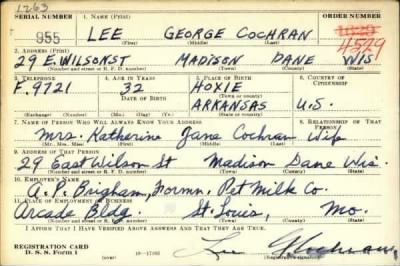 1263
SERIAL NUMBER 1. NAME (Print) ORDER NUMBER
955 LEE GEORGE COCHRAN 4529
(First) (Middle) (Last)
2. ADDRESS (Print)
29 E. WILSON ST MADISON DANE WIS.
(Number and street or R. F. D. number) (Town) (County) (State)
3. TELEPHONE 4. AGE IN YEARS 5. PLACE OF BIRTH 6. COUNTRY OF CITIZENSHIP
F. 9721 32 HOXIE
DATE OF BIRTH ARKANSAS U.S.
(Exchange) (Number) (Mo.) (Day) (Yr.) (State or country)
7. NAME OF PERSON WHO WILL ALWAYS KNOW YOUR ADDRESS 8. RELATIONSHIP OF THAT PERSON
Mrs. Katherine Jane Cochran Wife
(Mr., Mrs., Miss) (First) (Middle) (Last)
9. ADDRESS OF THAT PERSON
29 East Wilson St Madison Dane Wis.
(Number and street or R. F. D. number) (Town) (County) (State)
10. EMPLOYER'S NAME
A. P. Brigham, Pet Milk Co.
11. PLACE OF EMPLOYMENT OR BUSINESS
Arcade Bldg. St. Louis, Mo.
(Number and street or R. F. D. number) (Town) (County) (State)
I AFFIRM THAT I HAVE VERIFIED ABOVE ANSWERS AND THAT THEY ARE TRUE.
REGISTRATION CARD
D. S. S. Form 1 Lee G Cochran